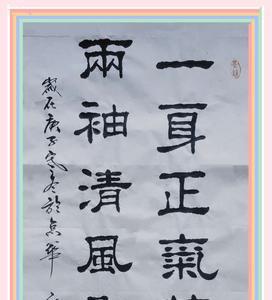 一身正氣
兩袖清風
歲在庚子冬於京華